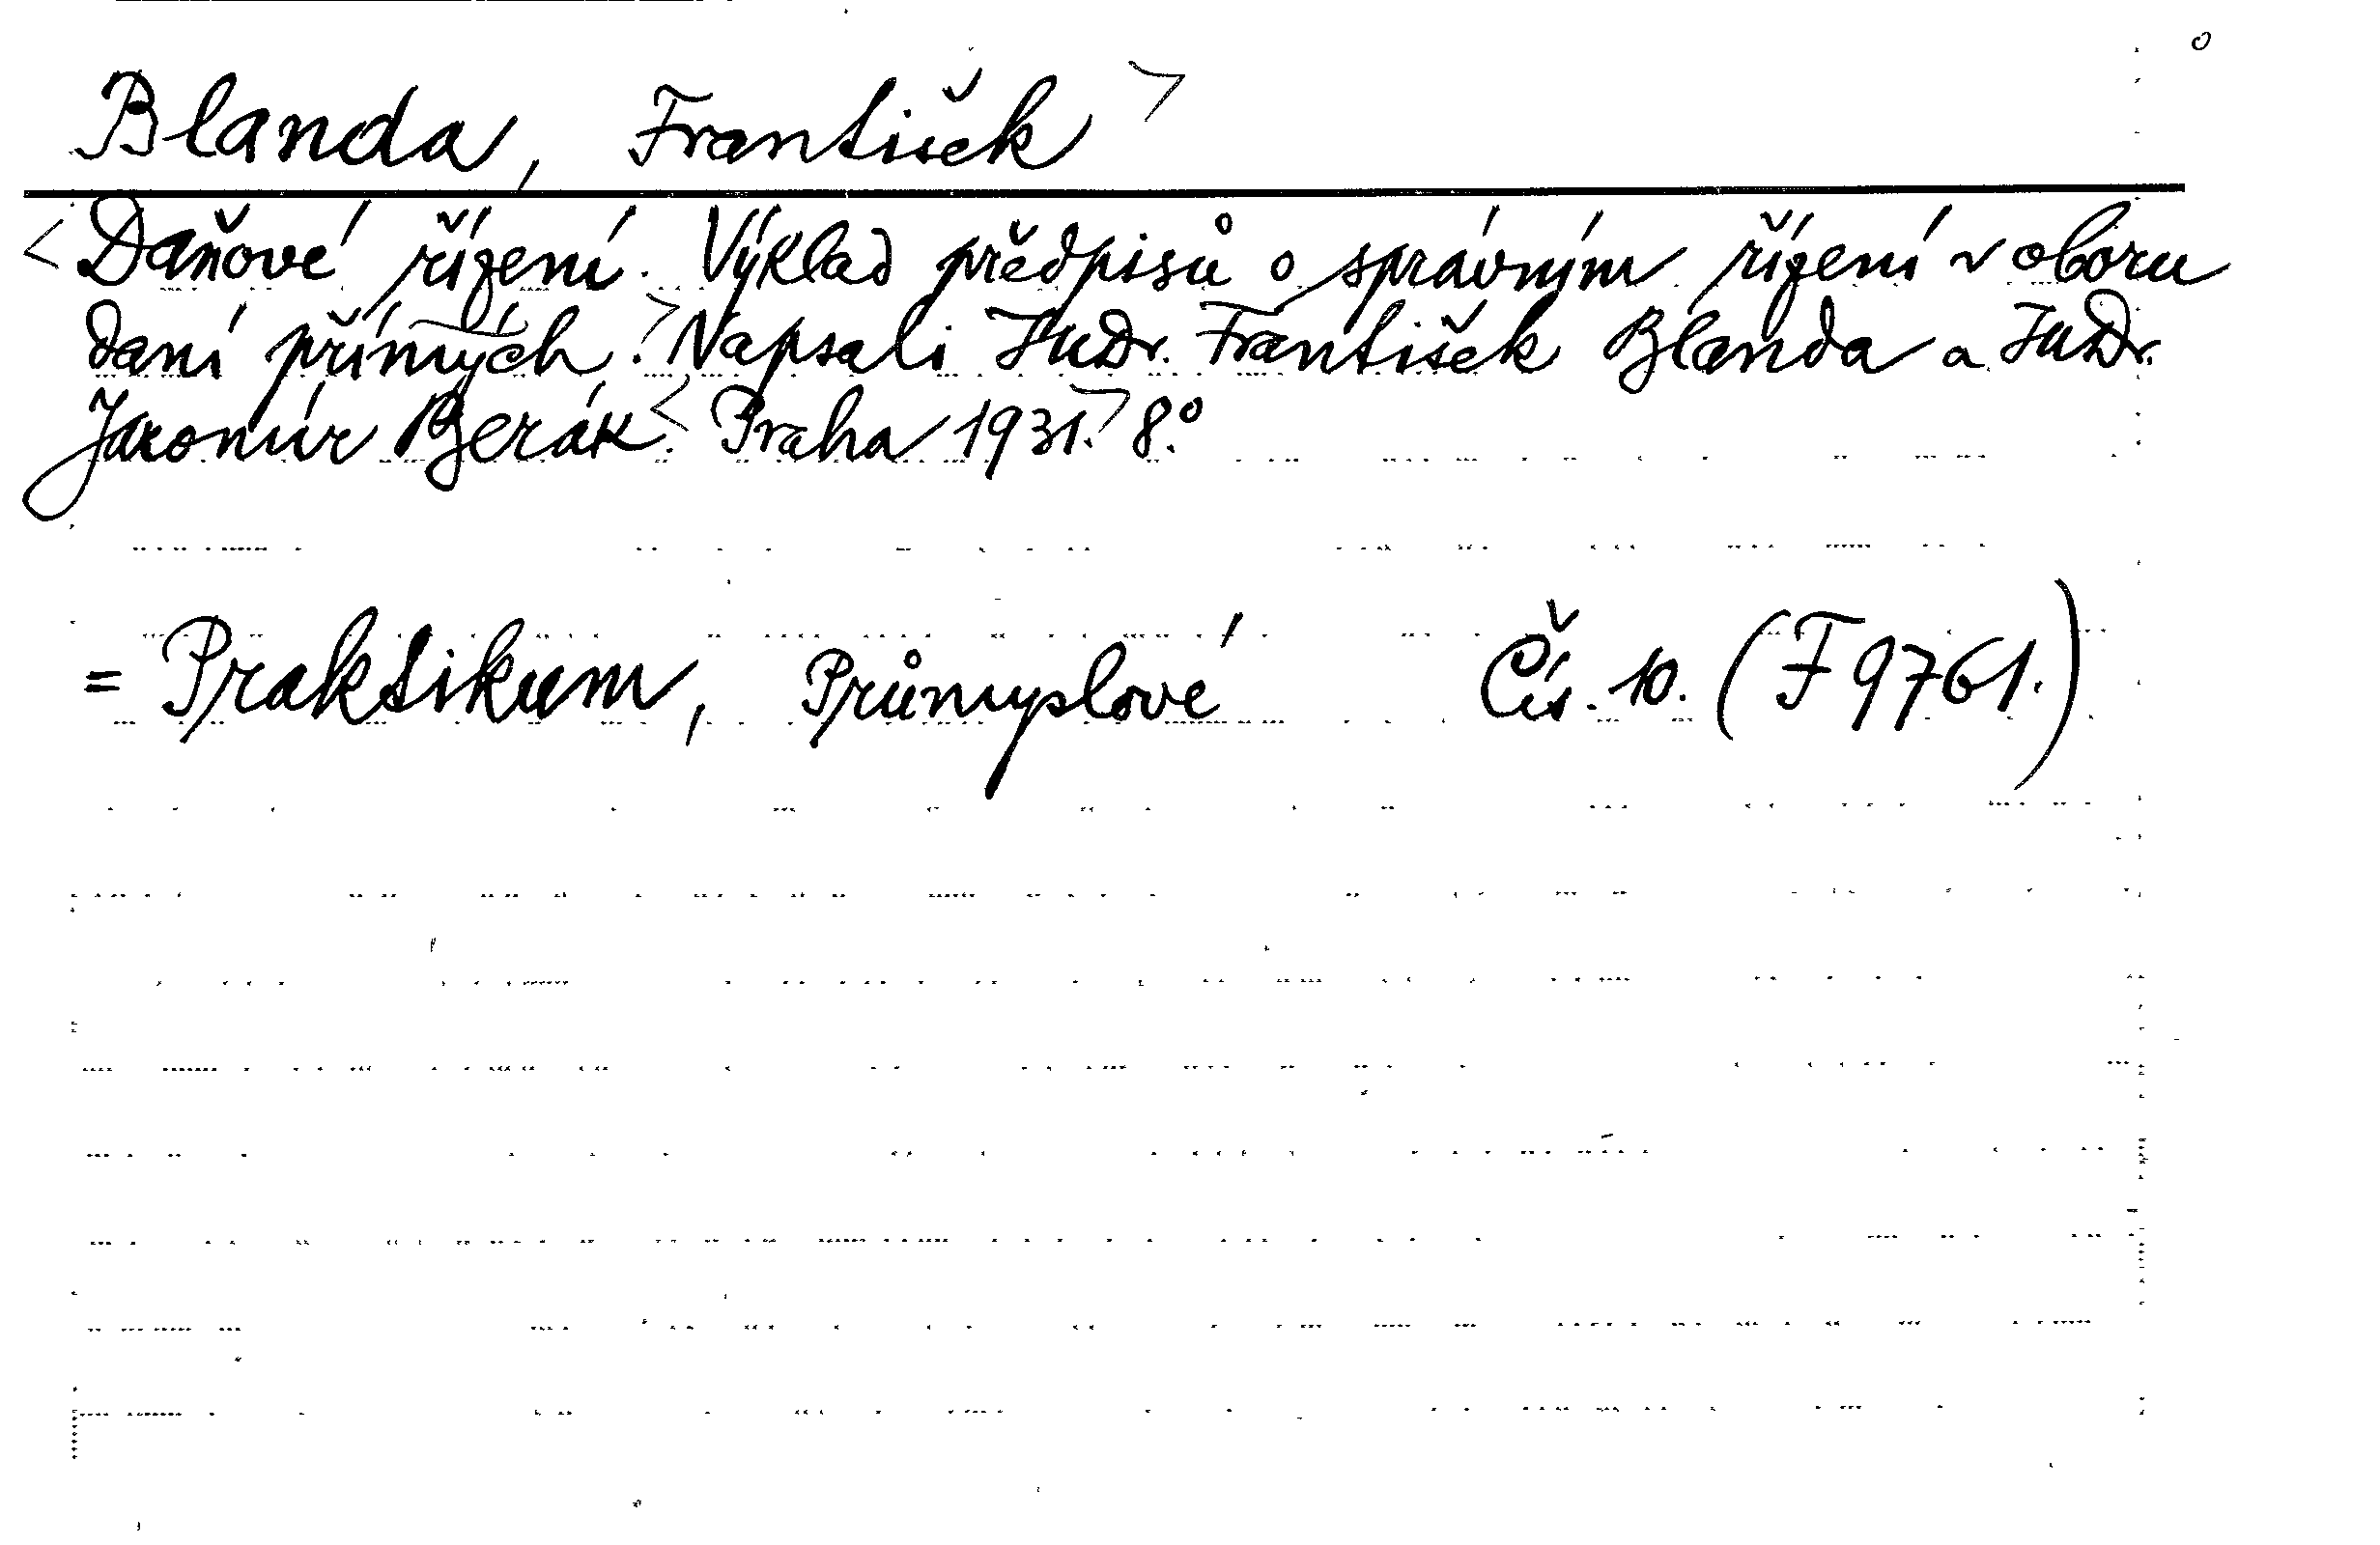 Blanda, František>
<Daňové řízení. Výklad předpisů o správním řízení v oboru
daní přímých.> Napsali JuDr. František Blanda a JuDr.
Jaromír Berák.< Praha 1931.> 8.°
= Praktikum, Průmyslové Čís. 10. (F 9761.)